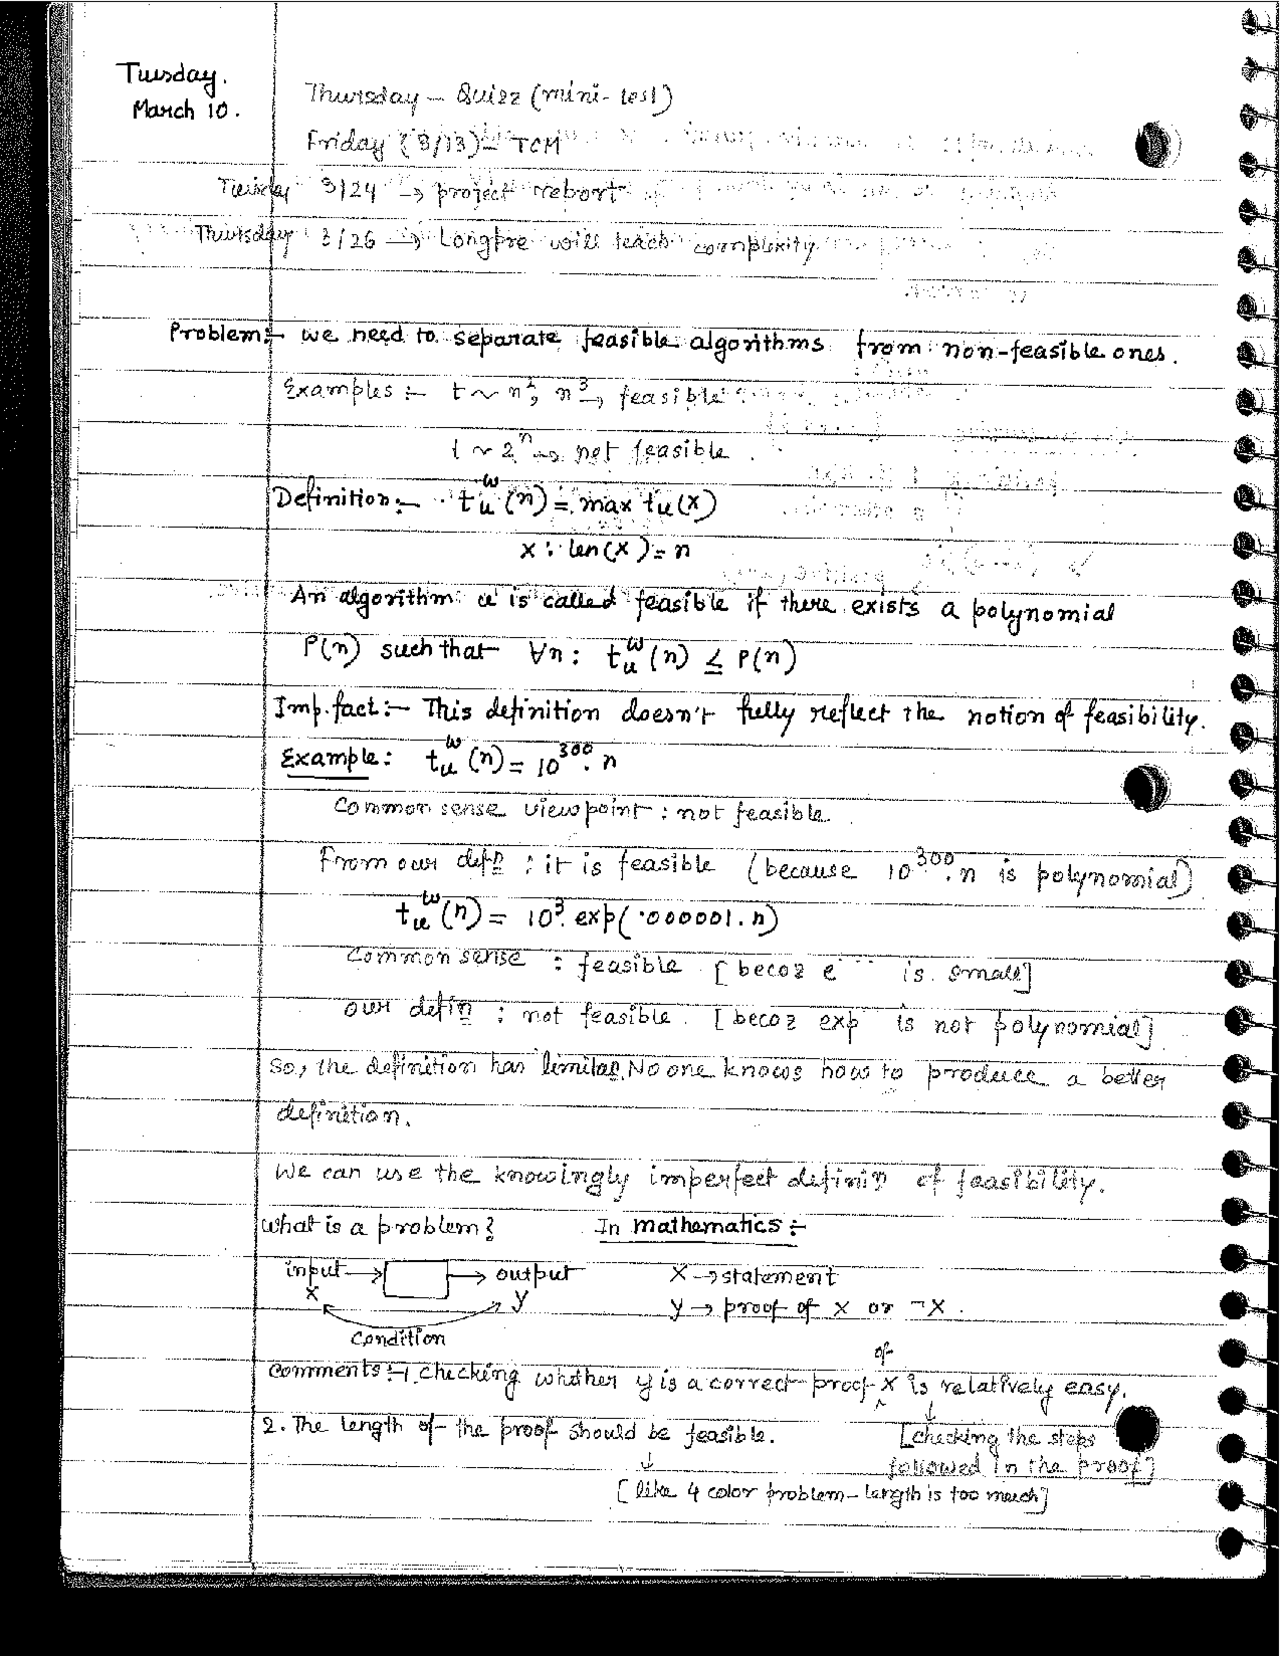 Tuesday.
March 10.
Thursday – Quizz (mini-test)
Friday (3/13) – TCM
Tuesday 3/24 → project report
Thursday 3/26 → Longpre will teach complexity
Problem:- we need to separate feasible algorithms from non-feasible ones.
Examples :- t ~ n², n³ → feasible
t ~ 2ⁿ → not feasible.
Definition:- t_u^w(n) = max t_u(x)
x : len(x) = n
An algorithm u is called feasible if there exists a polynomial
P(n) such that ∀n : t_u^w(n) ≤ P(n)
Imp.fact:- This definition doesn't fully reflect the notion of feasibility.
Example: t_u^w(n) = 10³⁰⁰. n
Common sense viewpoint : not feasible.
From our defn : it is feasible (because 10³⁰⁰.n is polynomial)
t_u^w(n) = 10³. exp(.000001. n)
Common sense : feasible [becoz e^... is small]
our defin : not feasible. [becoz exp is not polynomial]
So, the definition has No one knows how to produce a better
definition.
We can use the knowingly imperfect definin of feasibility.
What is a problem? In mathematics :-
input → → output X → statement
x y y → proof of x or ¬X.
Condition
Comments :- 1. checking whether y is a correct proof of x is relatively easy.
2. The length of the proof should be feasible. [checking the steps
followed in the proof]
[like 4 color problem – length is too much]